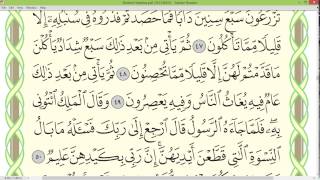 تَزْرَعُونَ سَبْعَ سِنِينَ دَأَبًا فَمَا حَصَدتُّمْ فَذَرُوهُ فِي سُنۢبُلِهِۦٓ إِلَّا
قَلِيلًا مِّمَّا تَأْكُلُونَ ٤٧ ثُمَّ يَأْتِي مِنۢ بَعْدِ ذَٰلِكَ سَبْعٌ شِدَادٌ يَأْكُلْنَ
مَا قَدَّمْتُمْ لَهُنَّ إِلَّا قَلِيلًا مِّمَّا تُحْصِنُونَ ٤٨ ثُمَّ يَأْتِي مِنۢ بَعْدِ ذَٰلِكَ
عَامٌ فِيهِ يُغَاثُ ٱلنَّاسُ وَفِيهِ يَعْصِرُونَ ٤٩ وَقَالَ ٱلْمَلِكُ ٱئْتُونِي
بِهِۦ فَلَمَّا جَآءَهُ ٱلرَّسُولُ قَالَ ٱرْجِعْ إِلَىٰ رَبِّكَ فَسْـَٔلْهُ مَا بَالُ
ٱلنِّسْوَةِ ٱلَّٰتِي قَطَّعْنَ أَيْدِيَهُنَّ إِنَّ رَبِّي بِكَيْدِهِنَّ عَلِيمٌ ٥٠